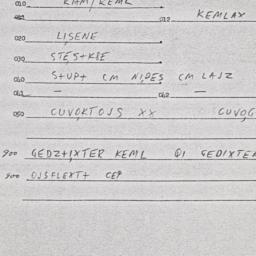 010 KAM/KEML
011 012 KEMLAX
020 LISENE
030 STES+KIE
040 S+UP+ CM NIDES CM LASZ
041 — 042 —
050 CUVOKTOJS XX CUVOG
900 GEDZ+IXTER KEML QI GEDIXTE
900 OJSFLEXT+ CEP